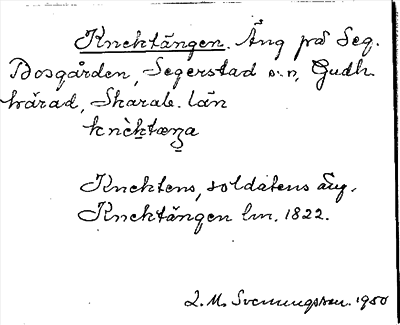 Knektängen. Äng på Seg.
Bosgården, Segerstad s:n, Gudh.
härad, Skarab. län
knèktæŋa
Knektens, soldatens äng.
Knektängen lm. 1822.
L. M. Svenungsson. 1950